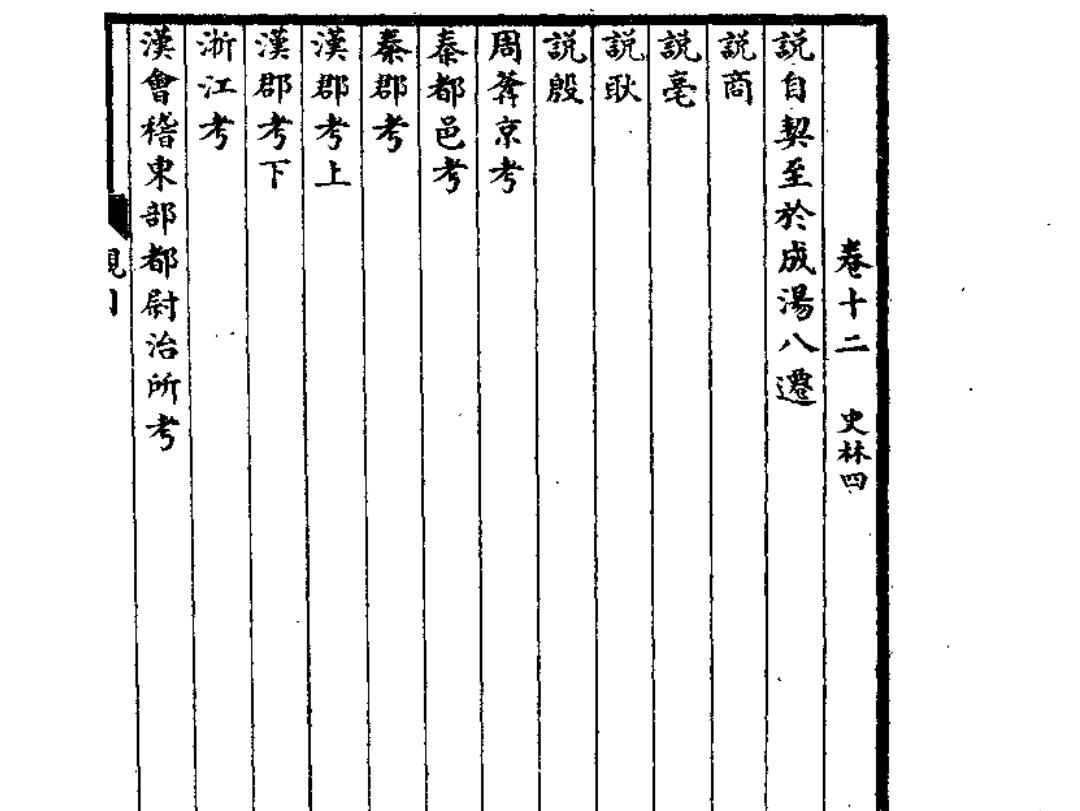 卷十二　史林四
説自契至於成湯八遷
説商
説亳
説耿
説殷
周葊京考
秦都邑考
秦郡考
漢郡考上
漢郡考下
浙江考
漢會稽東部都尉治所考